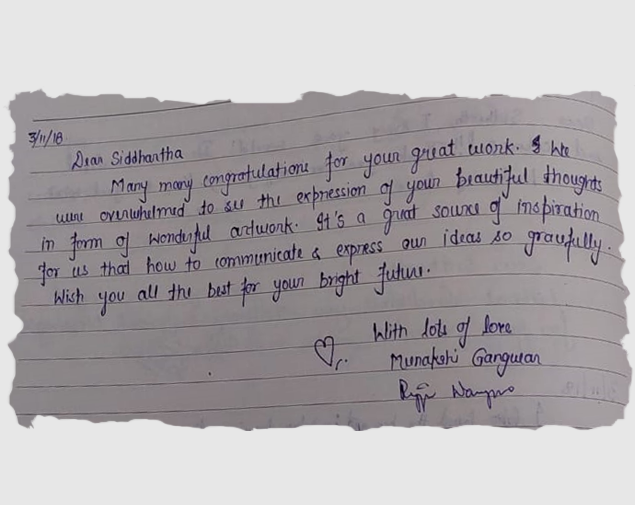 3/11/18
Dear Siddhantha
Many many congratulations for your great work. We
were overwhelmed to see the expression of your beautiful thoughts
in form of wonderful artwork. It's a great source of inspiration
for us that how to communicate & express our ideas so gracefully.
Wish you all the best for your bright future.
With lots of love
Munakshi Gangwar